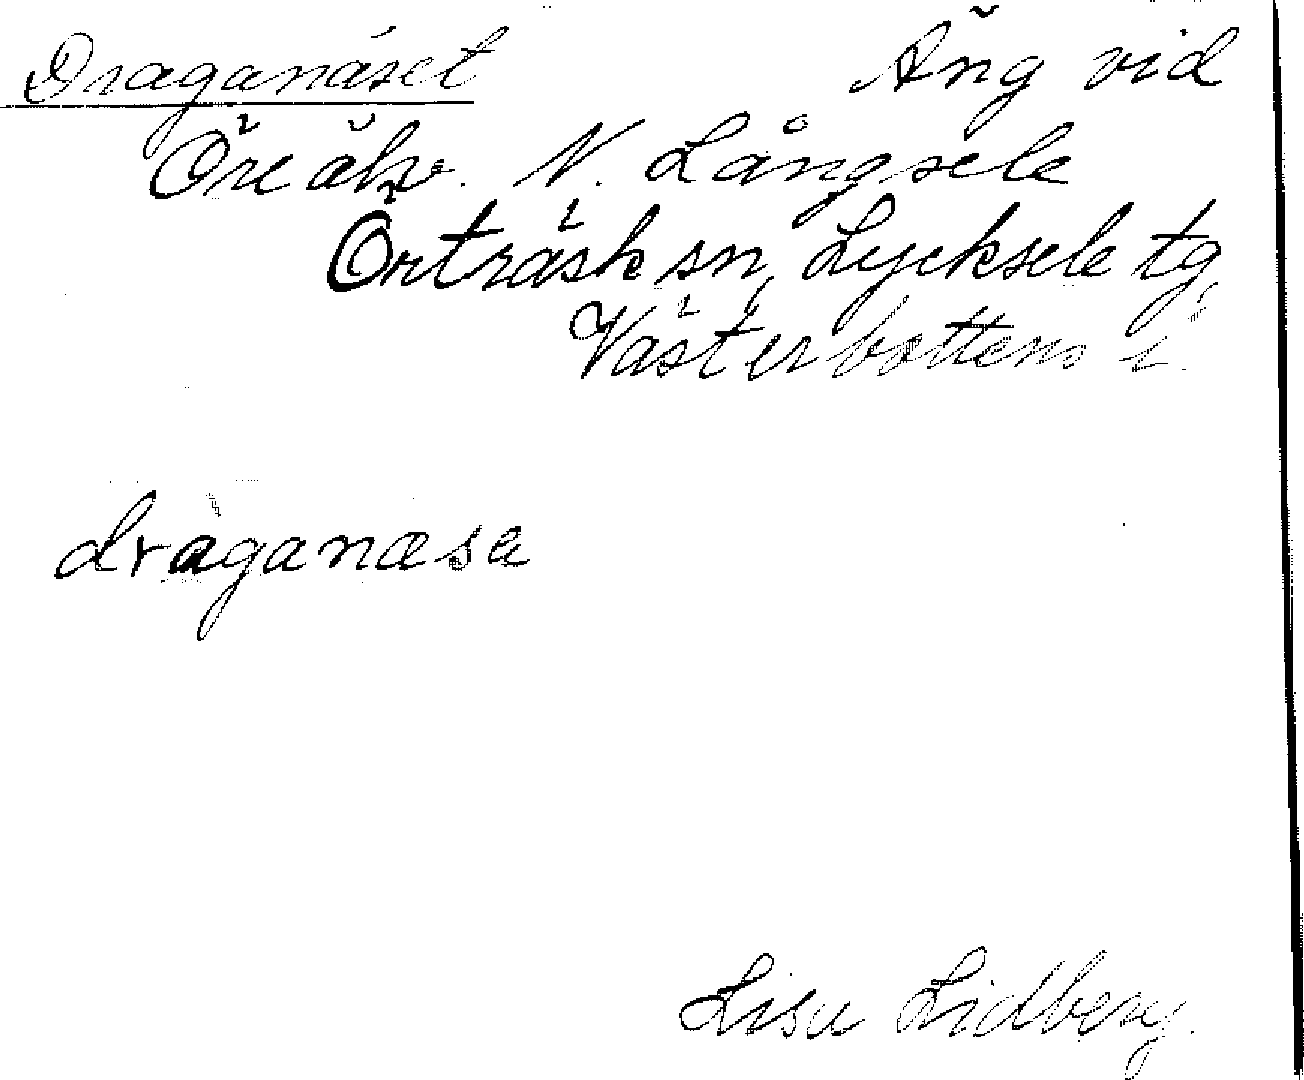 Draganäset Äng vid
Öre älv. N. Långsele
Örträsk sn, Lycksele tg
Västerbottens l.
draganæsa
Lisa Lidberg.